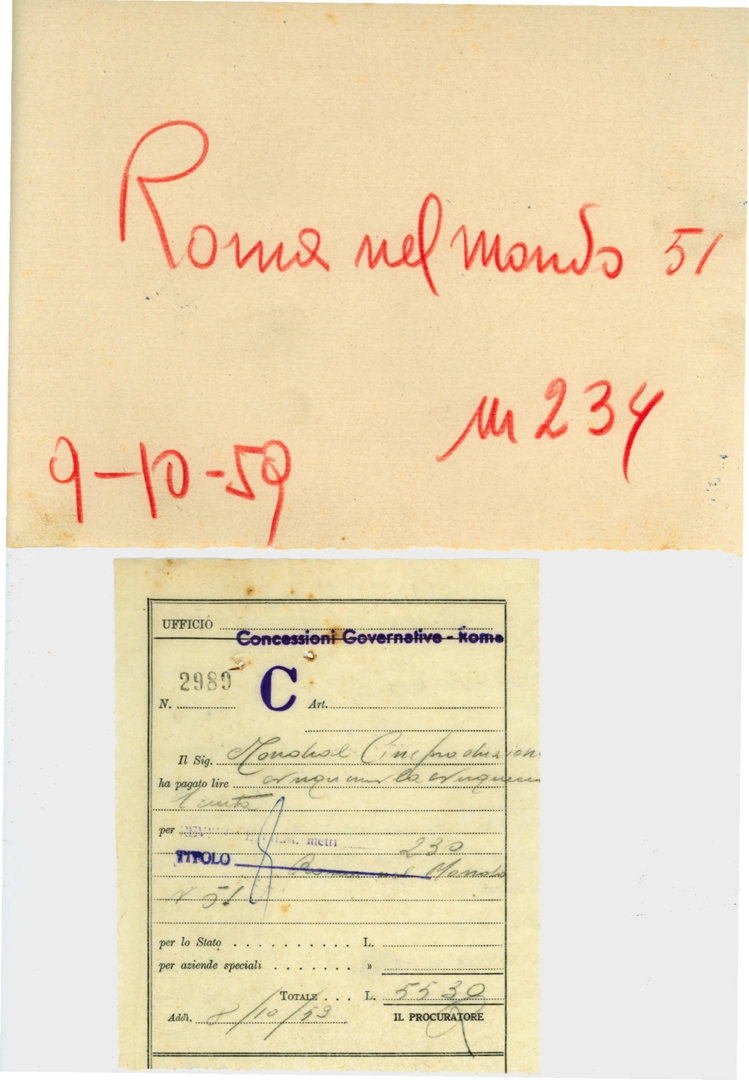 Roma nel mondo 51
m 234
9-10-59
UFFICIO
Concessioni Governative - Roma
N. 2989 C Art.
Il Sig. Mondial Cineproduzion
ha pagato lire
per metri 230
TITOLO Roma nel Mondo
N 51
per lo Stato . . . . . . . . . . L.
per aziende speciali . . . . . . . »
TOTALE . . . L. 5530
Addì, 8/10/59 IL PROCURATORE